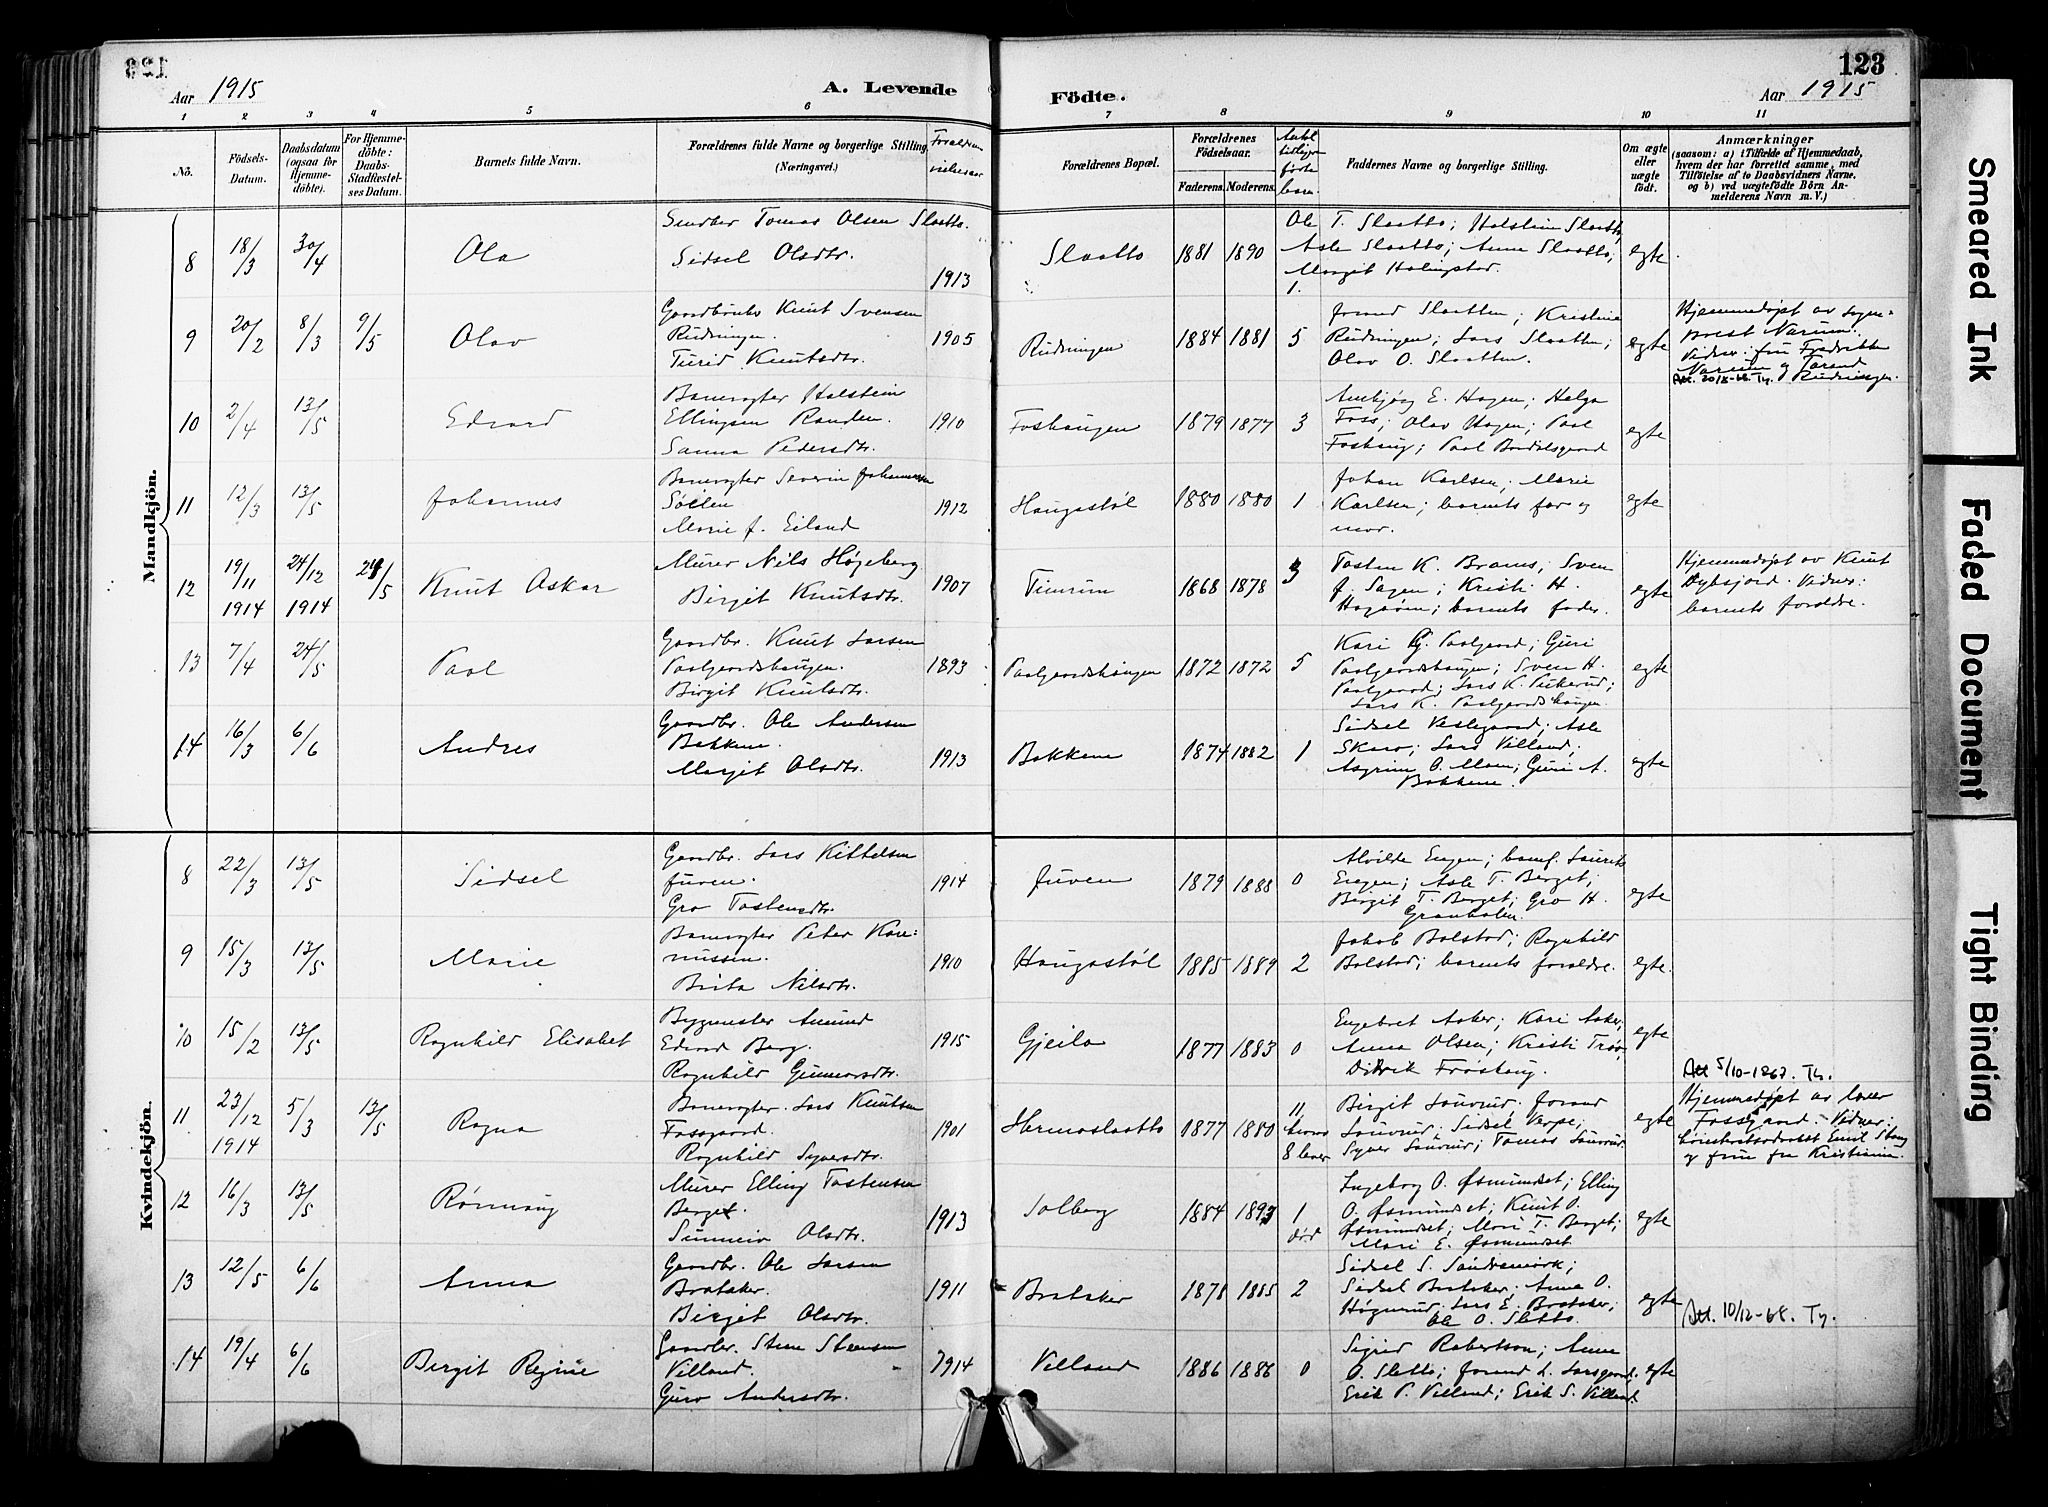 128
Aar 1915
A. Levende
Födte.
Aar 1915
123
1 2 3 4 5 6 7 8 9 10 11
No.
Födsels-Datum.
Daabsdatum (ogsaa for Hjemmedöbte).
For Hjemmedöbte: Daabs-Stadfæstelses Datum.
Barnets fulde Navn.
Forældrenes fulde Navne og borgerlige Stilling (Næringsvei).
Forældrenes Bopæl.
Forældrenes Födselsaar.
Faderens. Moderens.
Antal tidligere födte barn.
Faddernes Navne og borgerlige Stilling.
Om ægte eller uægte födt.
Anmærkninger
(saasom: a) i Tilfælde af Hjemmedaab, hvem der har forrettet samme, med Tilföielse af to Daabsvidners Navne, og b) ved uægtefödte Börn Anmelderens Navn m. V.)
Mandkjön.
8 18/3 30/4 Ola
Smedber Tomas Olsen Slaatto.
Sidsel Olsdtr. 1913
Slaatto 1881 1890 1.
Ole T. Slaatto; Holstein Slaatto;
Asle Slaatto; Anne Slaatto;
Margit Halingstad.
egte
9 20/2 8/3 9/5 Olav
Gaardbruker Knut Svensen
Rudningen.
Turid Knutsdtr. 1905
Rudningen 1884 1881 5
Jorand Slaatten; Kristine
Rudningen; Lars Slaatten;
Olav O. Slaatten.
egte
Hjemmedøpt av sogneprest Narum.
Vidner: fru Fredrikke
Narum og Jorand
Rudningen.
10 2/4 13/5 Edvard
Banevogter Holstein
Ellingsen Randen.
Sanna Pedersdtr. 1910
Foshaugen 1879 1877 3
Ambjørg E. Hagen; Helga
Foss; Olav Hagen; Paal
Foshaug; Paal
egte
11 12/3 13/5 Johannes
Banevogter Severin Johannesen
Marie J. Eiland 1912
Haugastøl 1880 1880 1
Johan Karlsen; Marie
Karlsen; barnets far og
mor.
egte
12 19/11 1914 24/12 1914 24/5 Knut Oskar
Murer Nils Høgeberg
Birgit Knutsdtr. 1907
Timrum 1868 1878 3
Tosten K. Brams; Sven
J. Sagen; Kristi H.
Hagaøen; barnets fader.
egte
Hjemmedøpt av Knut
Dybsjord. Vidner:
barnets forældre.
13 7/4 24/5 Paal
Gaardbr. Knut Larsen
Paalgaardshaugen.
Birgit Knutsdtr. 1893
Paalgaardshaugen 1872 1872 5
Kari G. Paalgaard; Guri
Paalgaardshaugen; Sven H.
Paalgaard; Lars K.
Lars K. Paalgaardshaugen
egte
14 16/3 6/6 Andres
Gaardbr. Ole Andersen
Bakkene.
Margit Olsdtr. 1913
Bakkene 1874 1882 1
Sidsel Veslegaard; Asle
Skaro; Lars Villand;
Asgrim O. Moen; Guri A.
Bakkene.
egte
Kvindekjön.
8 22/3 13/5 Sidsel
Gaardbr. Lars Kittelsen
Juven.
Gro Tostensdtr. 1914
Juven 1879 1888 0
Alvilde Engen; Laurits
Engen; Asle T. Berget;
Birgit T. Berget; Gro H.
Granhølen.
egte
9 15/3 13/5 Marie
Banevogter Peter Rasmussen.
Birta Nilsdtr. 1910
Haugastøl 1885 1889 2
Jakob Bolstad; Ragnhild
Bolstad; barnets forældre.
egte.
10 15/2 13/5 Ragnhild Elisabet
Bygmester Amund
Edvard Berg.
Ragnhild Gunnarsdtr. 1915
Gjeilo 1877 1883 0
Engebret Aaker; Kari Aaker;
Anna Olsen; Kristi Trøo;
Didrik Frøshaug.
egte
Att 5/10-1967. Ty.
11 23/12 1914 5/3 13/5 Ragna
Banevogter Lars Knutsen
Fossgaard.
Ragnhild Syversdtr. 1901
Hermoslaatto 1877 1880 11, hvorav 8 lever
Birgit Sauvrud; Jorand
Sauvrud; Sidsel Verpe;
Syver Sauvrud; Tomas Sauvrud.
egte
Hjemmedøpt av lærer
Fossgaard. Vidner:
Høiesteretsadvokat Emil Stang
og frue fra Kristiania.
12 16/3 13/5 Rønnaug
Murer Elling Tostensen
Berget.
Sunneiv Olsdtr. 1913
Solberg 1884 1893 1 død
Ingeborg O. Øsmundset; Elling
O. Øsmundset; Knut O.
Øsmundset; Mari T. Berget;
Mari E. Øsmundset
egte
13 12/5 6/6 Anna
Gaardbr. Ole Larsen
Brataker.
Birgit Olsdtr. 1911
Brataker 1878 1885 2
Sidsel S. Sandvemork;
Sidsel Brataker; Anne O.
Høgnerud; Lars E. Brataker;
Ole O. Sletto.
egte
Att. 10/12-68. Ty.
14 19/4 6/6 Birgit Regine
Gaardbr. Sten Stensen
Villand.
Guro Andersdtr. 1914
Villand 1886 1886 0
Sigrid Robertson; Anne
O. Sletto; Jorand L. Larsgaard;
Erik P. Villand; Erik S. Villand.
egte
Smeared Ink
Faded Document
Tight Binding